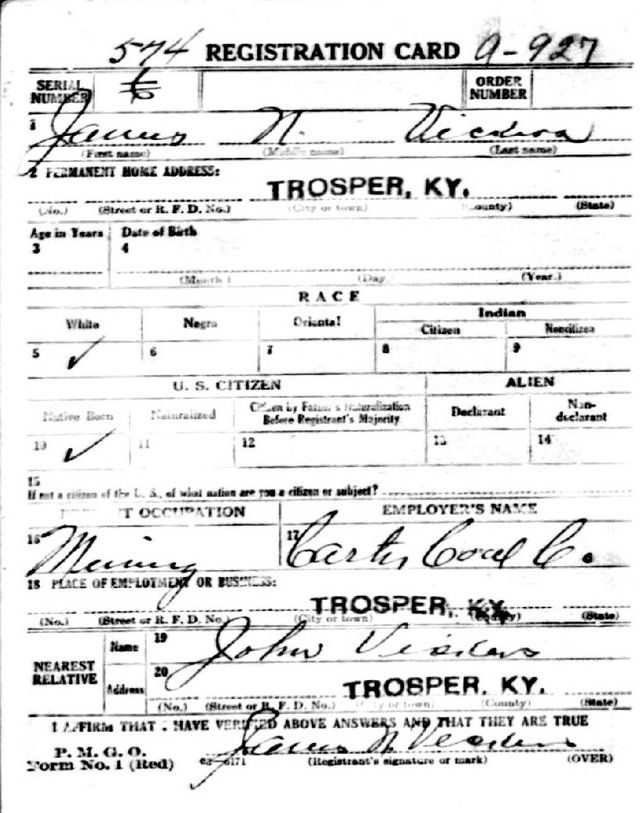 574 REGISTRATION CARD A-927
SERIAL NUMBER ORDER NUMBER
1 James N.
(First name) (Middle name) (Last name)
2 PERMANENT HOME ADDRESS:
TROSPER, KY.
(No.) (Street or R. F. D. No.) (City or town) (County) (State)
Age in Years Date of Birth
3 4
(Month) (Day) (Year)
RACE
White Negro Oriental Indian
Citizen Noncitizen
5 ✓ 6 7 8 9
U. S. CITIZEN ALIEN
Native Born Naturalized Citizen by Father's Naturalization Before Registrant's Majority Declarant Non-declarant
10 ✓ 11 12 13 14
15
If not a citizen of the U. S., of what nation are you a citizen or subject?
OCCUPATION EMPLOYER'S NAME
16 Mining 17 Carter Coal Co.
18 PLACE OF EMPLOYMENT OR BUSINESS:
TROSPER, KY.
(No.) (Street or R. F. D. No.) (City or town) (County) (State)
NEAREST RELATIVE
Name 19 John
Address 20 TROSPER, KY.
(No.) (Street or R. F. D. No.) (City or town) (County) (State)
I AFFIRM THAT I HAVE VERIFIED ABOVE ANSWERS AND THAT THEY ARE TRUE
P. M. G. O.
Form No. 1 (Red) James N
(Registrant's signature or mark) (OVER)